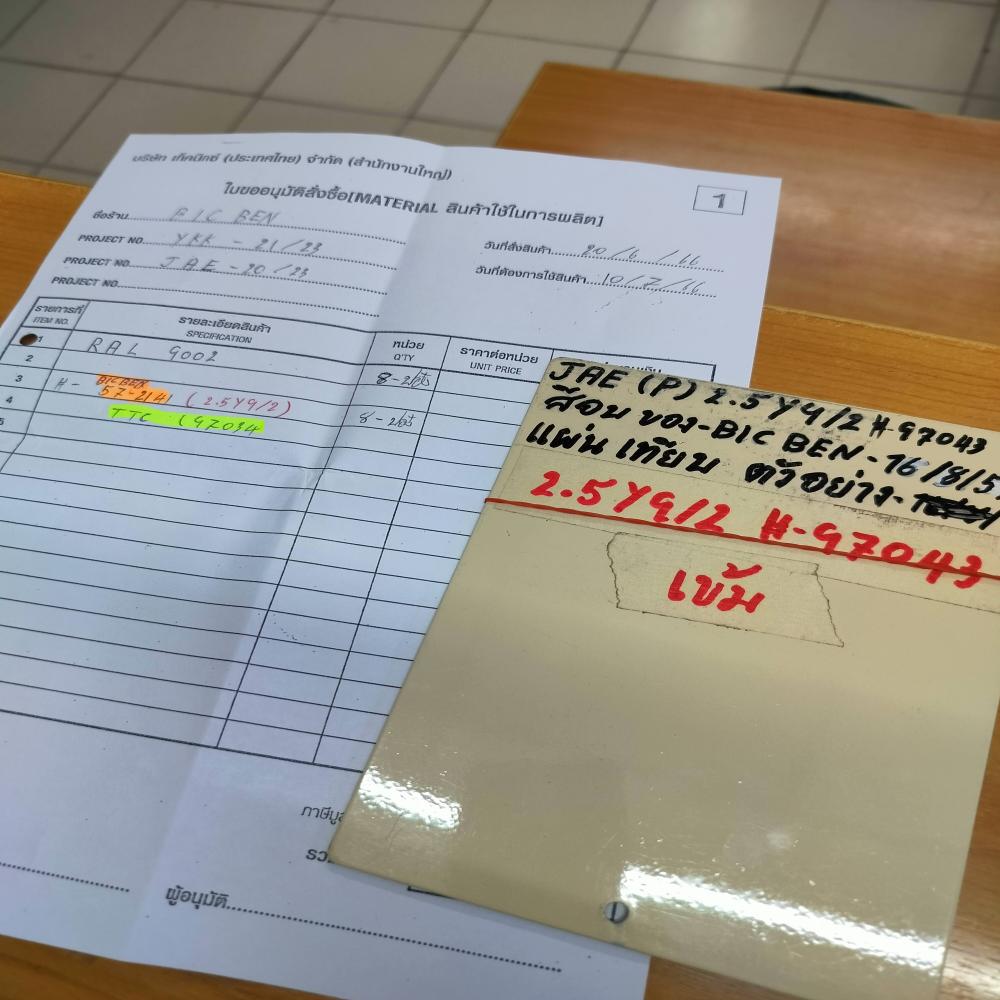 บริษัท เท็คนิกซ์ (ประเทศไทย) จำกัด (สำนักงานใหญ่)
ใบขออนุมัติสั่งซื้อ[MATERIAL สินค้าใช้ในการผลิต]
1
ชื่อร้าน BIC BEN
PROJECT NO. YKK - 21/23
PROJECT NO. JAE - 20/23
PROJECT NO.
วันที่สั่งสินค้า 20/6/66
วันที่ต้องการใช้สินค้า 10/7/66
รายการที่ รายละเอียดสินค้า หน่วย ราคาต่อหน่วย
ITEM NO. SPECIFICATION Q'TY UNIT PRICE
1 RAL 9002
2
3 H- BIC BEN
57-2141 (2.5Y9/2)
4 TTC (97034
5
ผู้อนุมัติ
JAE (P) 2.5Y9/2 H-97043
สีอบ ของ-BIC BEN-16/8/5
แผ่น เทียบ ตัวอย่าง-
2.5Y9/2 H-97043
เข้ม